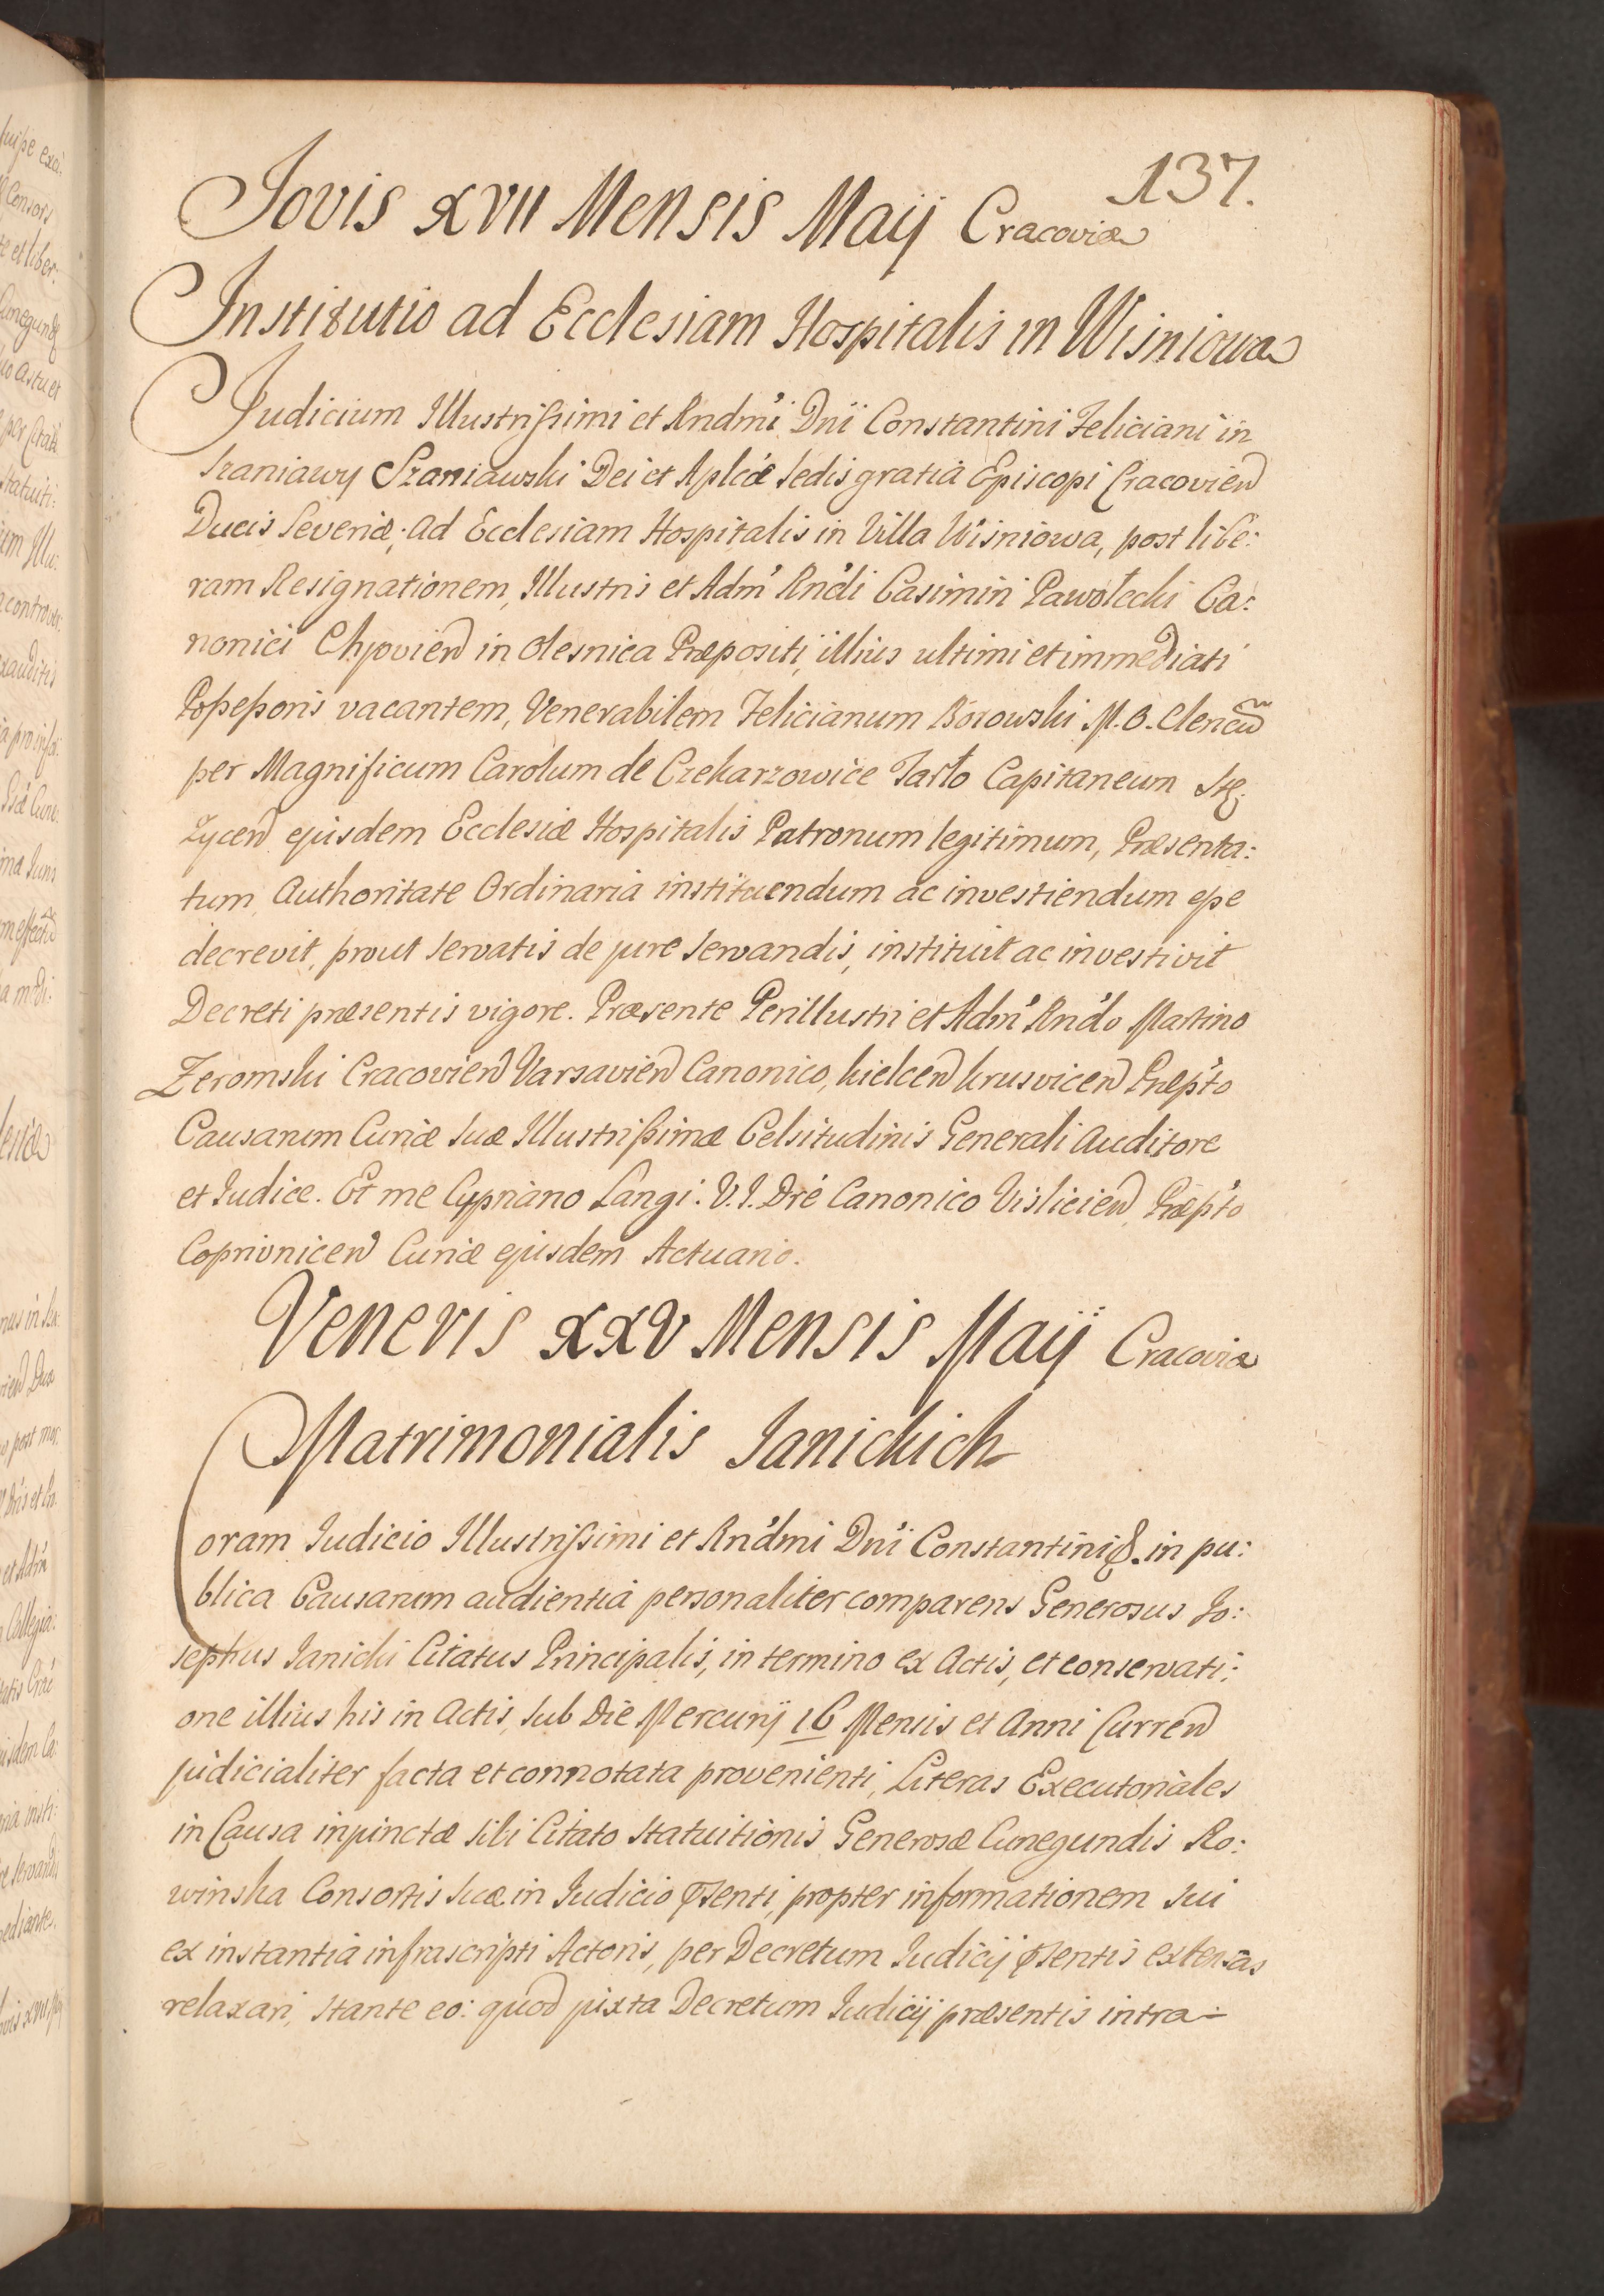 137.
Jovis XVII Mensis Maij Cracoviæ
Institutio ad Ecclesiam Hospitalis in Wisniowa
Judicium Illustrissimi et Rndmi Dni Constantini Feliciani in
Szaniawy Szaniawski Dei et Aplcæ Sedis gratia Episcopi Cracovien
Ducis Severiæ; ad Ecclesiam Hospitalis in Villa Wisniowa, post libe:
ram Resignationem, Illustris et Adm Rndi Casimiri Pawołecki Ca:
nonici in Olesnica Præpositi, illius ultimi et immediati
Possessoris vacantem, Venerabilem Felicianum Borowski M. O. Clericum
per Magnificum Carolum de Czekarzowice Tarło Capitaneum Stę:
zycen ejusdem Ecclesiæ Hospitalis Patronum legitimum, Præsenta:
tum, Authoritate Ordinaria instituendum ac investiendum esse
decrevit, prout servatis de jure servandis, instituit ac investivit
Decreti præsentis vigore. Præsente Perillustri et Adm Rndo Martino
Zeromski Cracovien Varsavien Canonico, Kielcen Krusvicen Præpto
Causarum Curiæ Suæ Illustrissimæ Celsitudinis Generali Auditore
et Judice. Et me Cypriano Langi: V. J. Dre Canonico Vislicien, Præpto
Coprivnicen Curiæ ejusdem Actuario.
Veneris XXV Mensis Maij Cracoviæ
Matrimonialis Janickich
Coram Judicio Illustrissimi et Rndmi Dni Constantini &. in pu:
blica Causarum audientia personaliter comparens Generosus Jo:
sephus Janicki Citatus Principalis, in termino ex Actis, et conservati:
one illius his in Actis, sub Die Mercurij 16 Mensis et Anni Curren
judicialiter facta et connotata provenienti, Literas Executoriales
in Causa injunctæ sibi Citato Statuitionis Generosæ Cunegundis Ro:
winska Consortis suæ in Judicio psenti, propter informationem sui
ex instantia infrascripti Actoris, per Decretum Judicij psentis extensas
relaxari, stante eo: quod juxta Decretum Judicij præsentis intra-